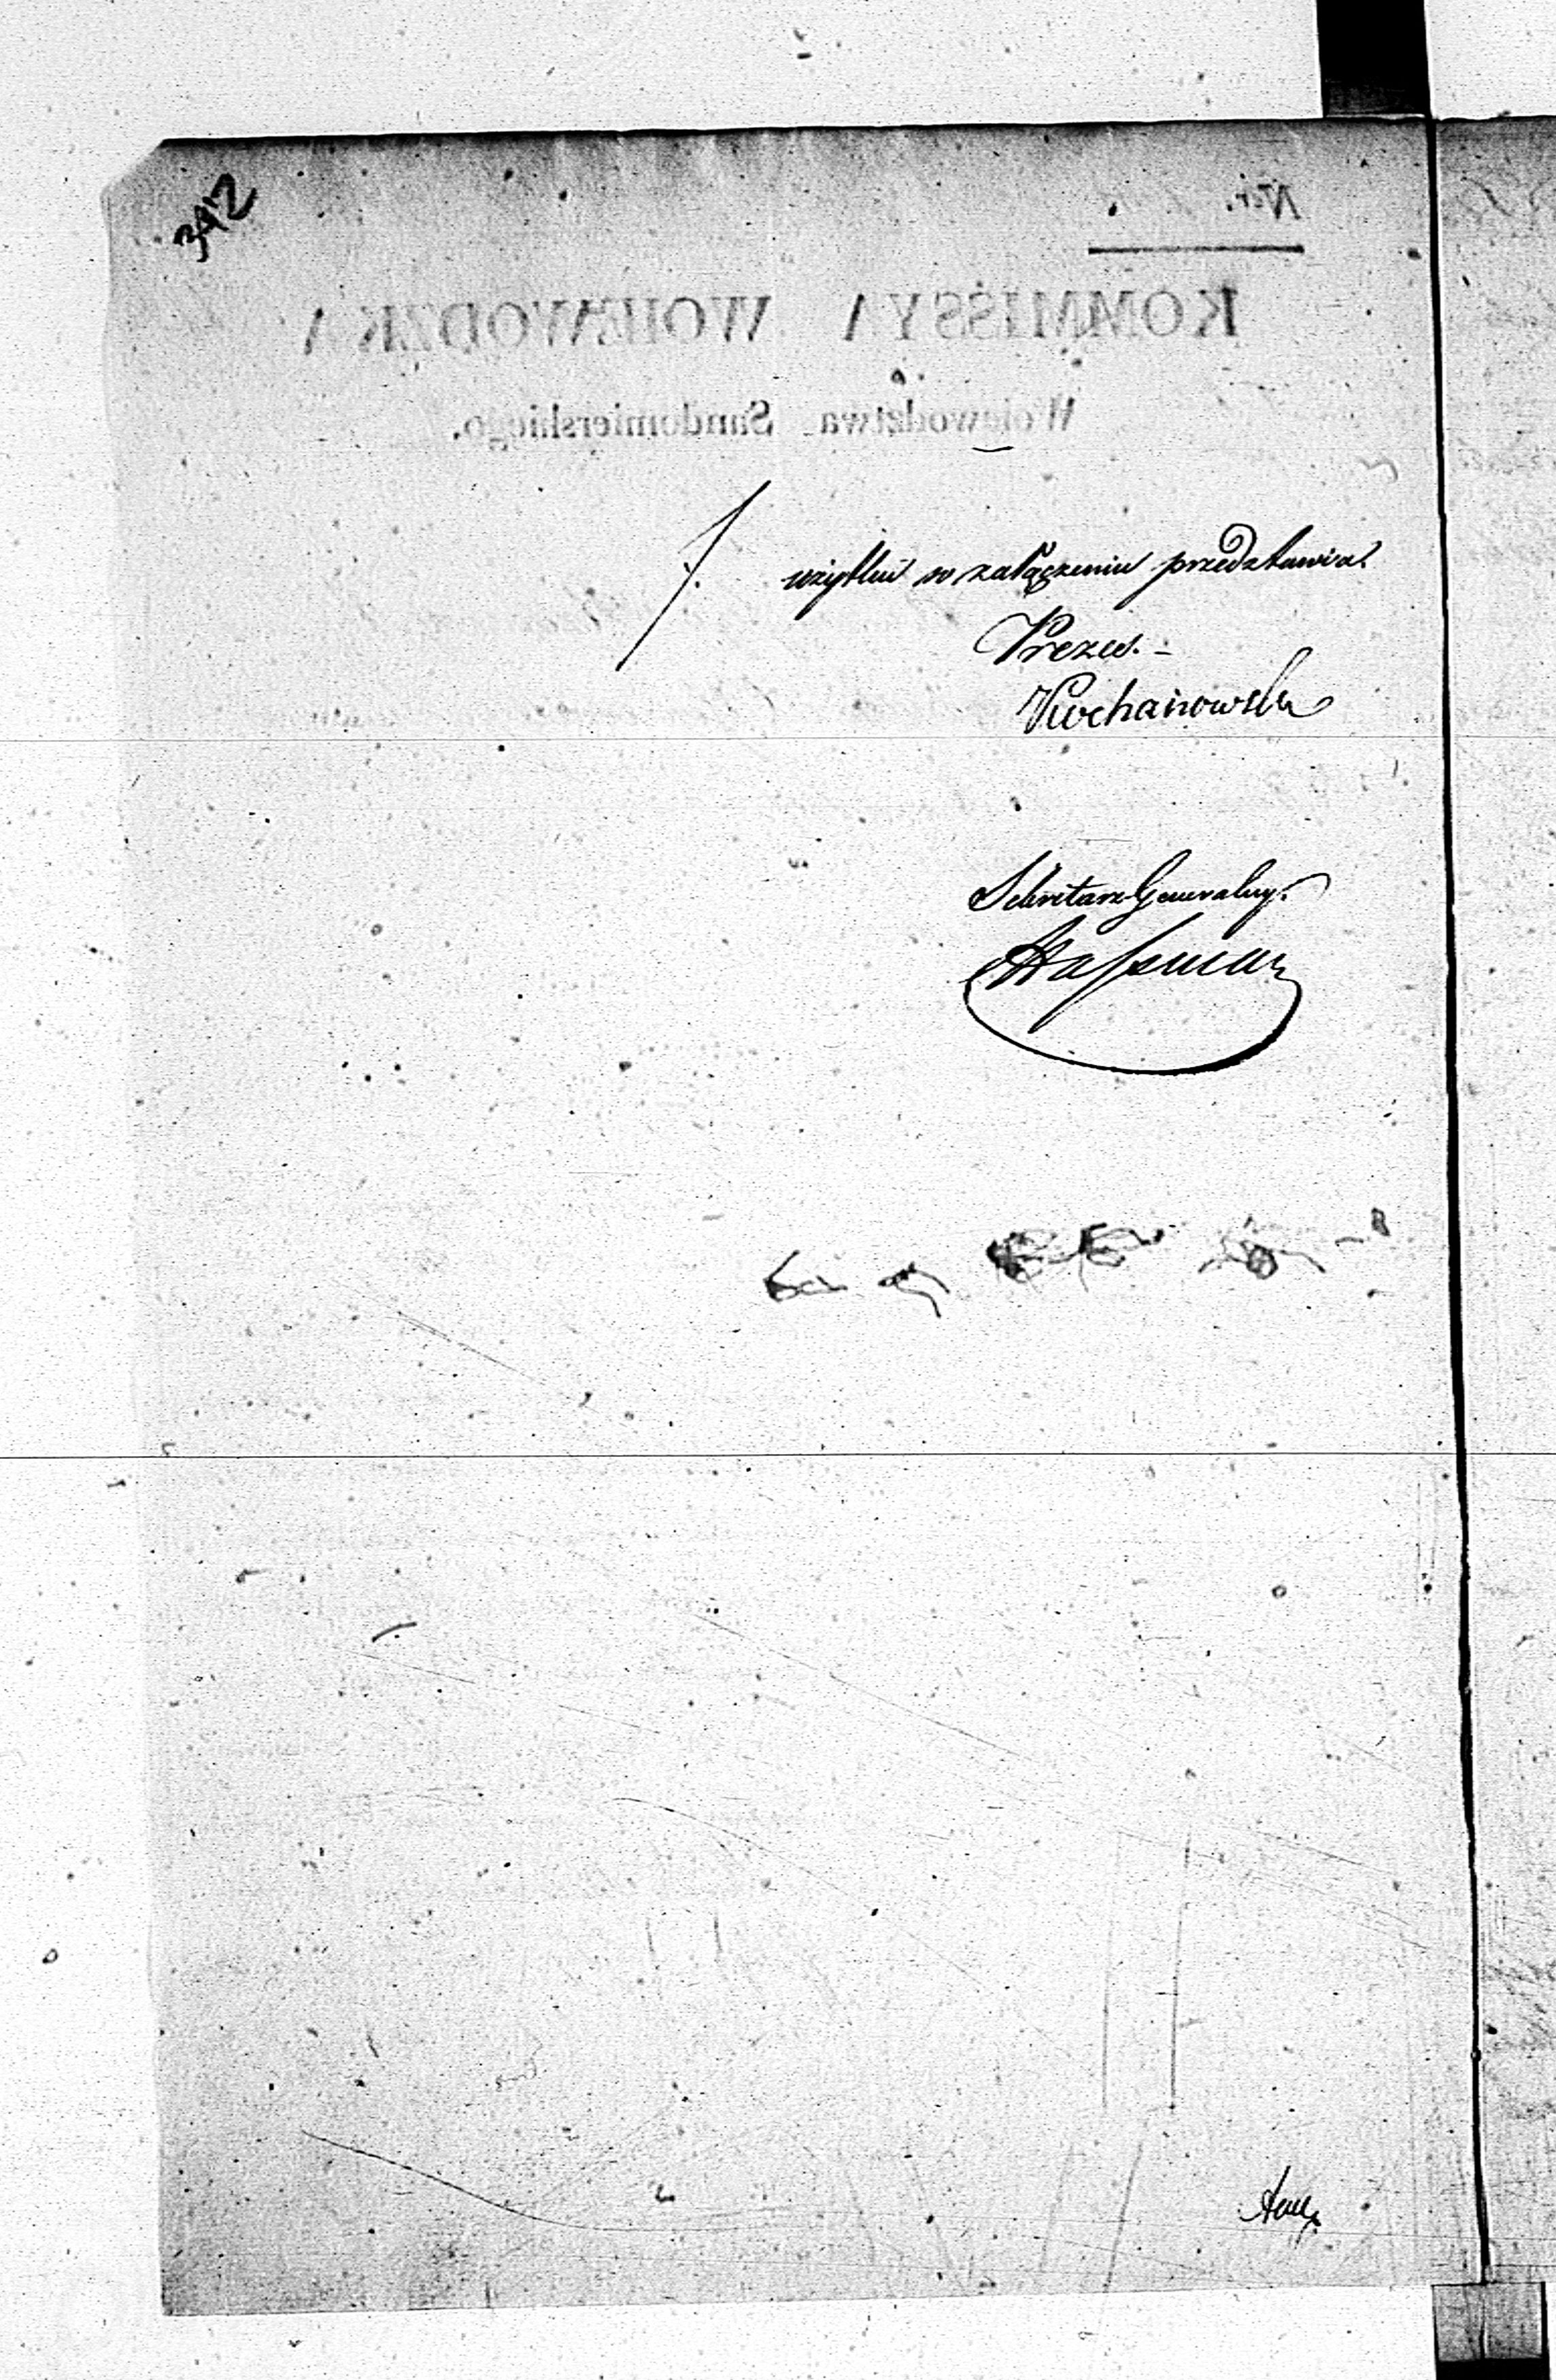 342
Ner.
KOMMISSYA WOIEWODZKA
Woiewodztwa Sandomierskiego.
w załączeniu przedstawia.
Prezes.
Kochanowski
Sekretarz Generalny.